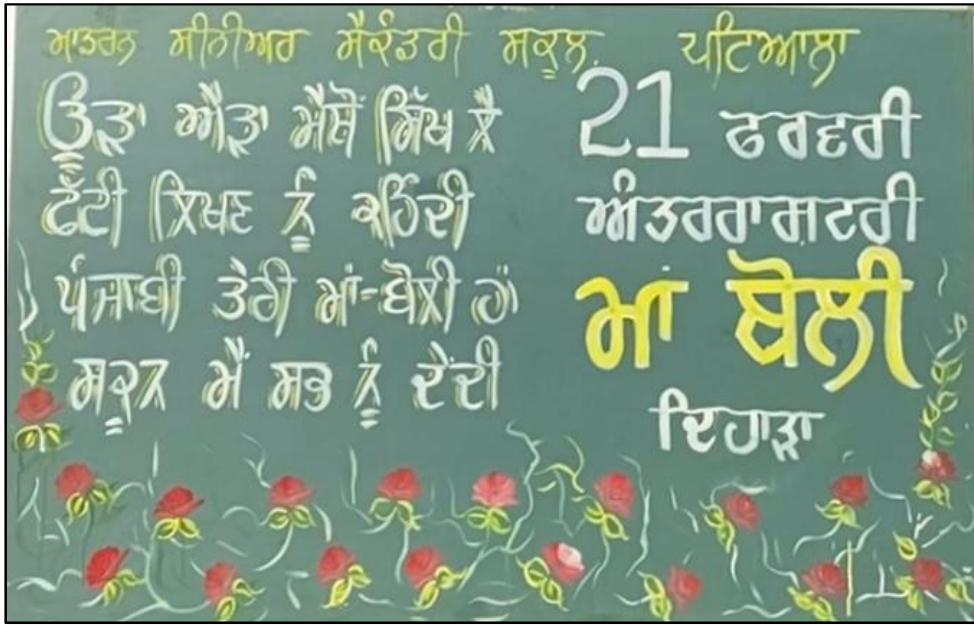 ਮਾਡਰਨ ਸੀਨੀਅਰ ਸੈਕੰਡਰੀ ਸਕੂਲ. ਪਟਿਆਲਾ
ਊੜਾ ਐੜਾ ਮੈਥੋਂ ਸਿੱਖ ਲੈ
ਫੱਟੀ ਲਿਖਣ ਨੂੰ ਕਹਿੰਦੀ
ਪੰਜਾਬੀ ਤੇਰੀ ਮਾਂ-ਬੋਲੀ ਹਾਂ
ਸਕੂਨ ਮੈਂ ਸਭ ਨੂੰ ਦੇਂਦੀ
21 ਫਰਵਰੀ
ਅੰਤਰਰਾਸ਼ਟਰੀ
ਮਾਂ ਬੋਲੀ
ਦਿਹਾੜਾ